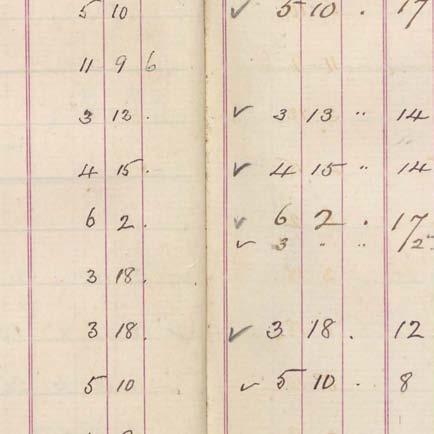 5 10 ✓ 5 10 . 17
11 9 6
3 12 . ✓ 3 13 " 14
4 15 . ✓ 4 15 " 14
6 2 . ✓ 6 2 . 17
✓ 3 " "
3 18 .
3 18 . ✓ 3 18 . 12
5 10 ✓ 5 10 . 8